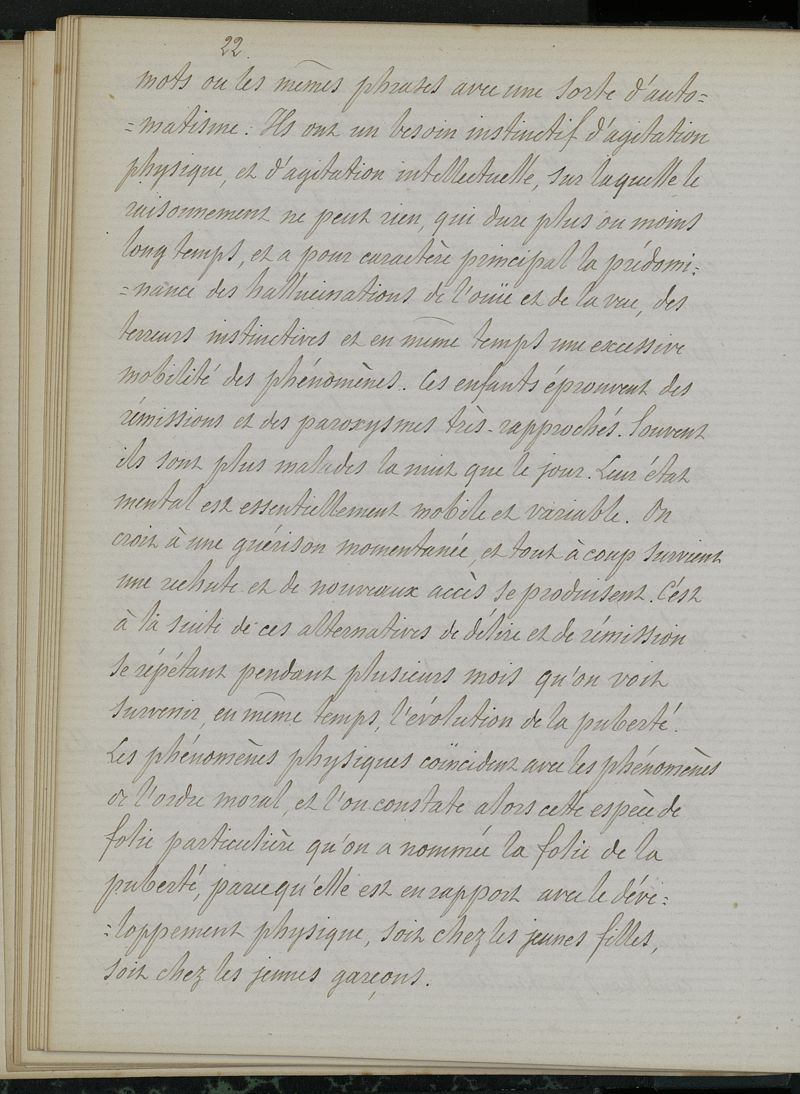 22.
mots ou les mêmes phrases avec une sorte d'auto=
=matisme. Ils ont un besoin instinctif d'agitation
physique, et d'agitation intellectuelle, sur laquelle le
raisonnement ne peut rien, qui dure plus ou moins
long temps, et a pour caractère principal la prédomi=
=nance des hallucinations de l'ouïe et de la vue, des
terreurs instinctives et en même temps une excessive
mobilité des phénomènes. Ces enfants éprouvent des
rémissions et des paroxysmes très-rapprochés. Souvent
ils sont plus malades la nuit que le jour. Leur état
mental est essentiellement mobile et variable. On
croit à une guérison momentanée, et tout à coup survient
une rechute et de nouveaux accès se produisent. C'est
à la suite de ces alternatives de délire et de rémission
se répétant pendant plusieurs mois qu'on voit
survenir, en même temps, l'évolution de la puberté.
Les phénomènes physiques coïncident avec les phénomènes
de l'ordre moral, et l'on constate alors cette espèce de
folie particulière qu'on a nommée la folie de la
puberté, parce qu'elle est en rapport avec le déve=
=loppement physique, soit chez les jeunes filles,
soit chez les jeunes garçons.